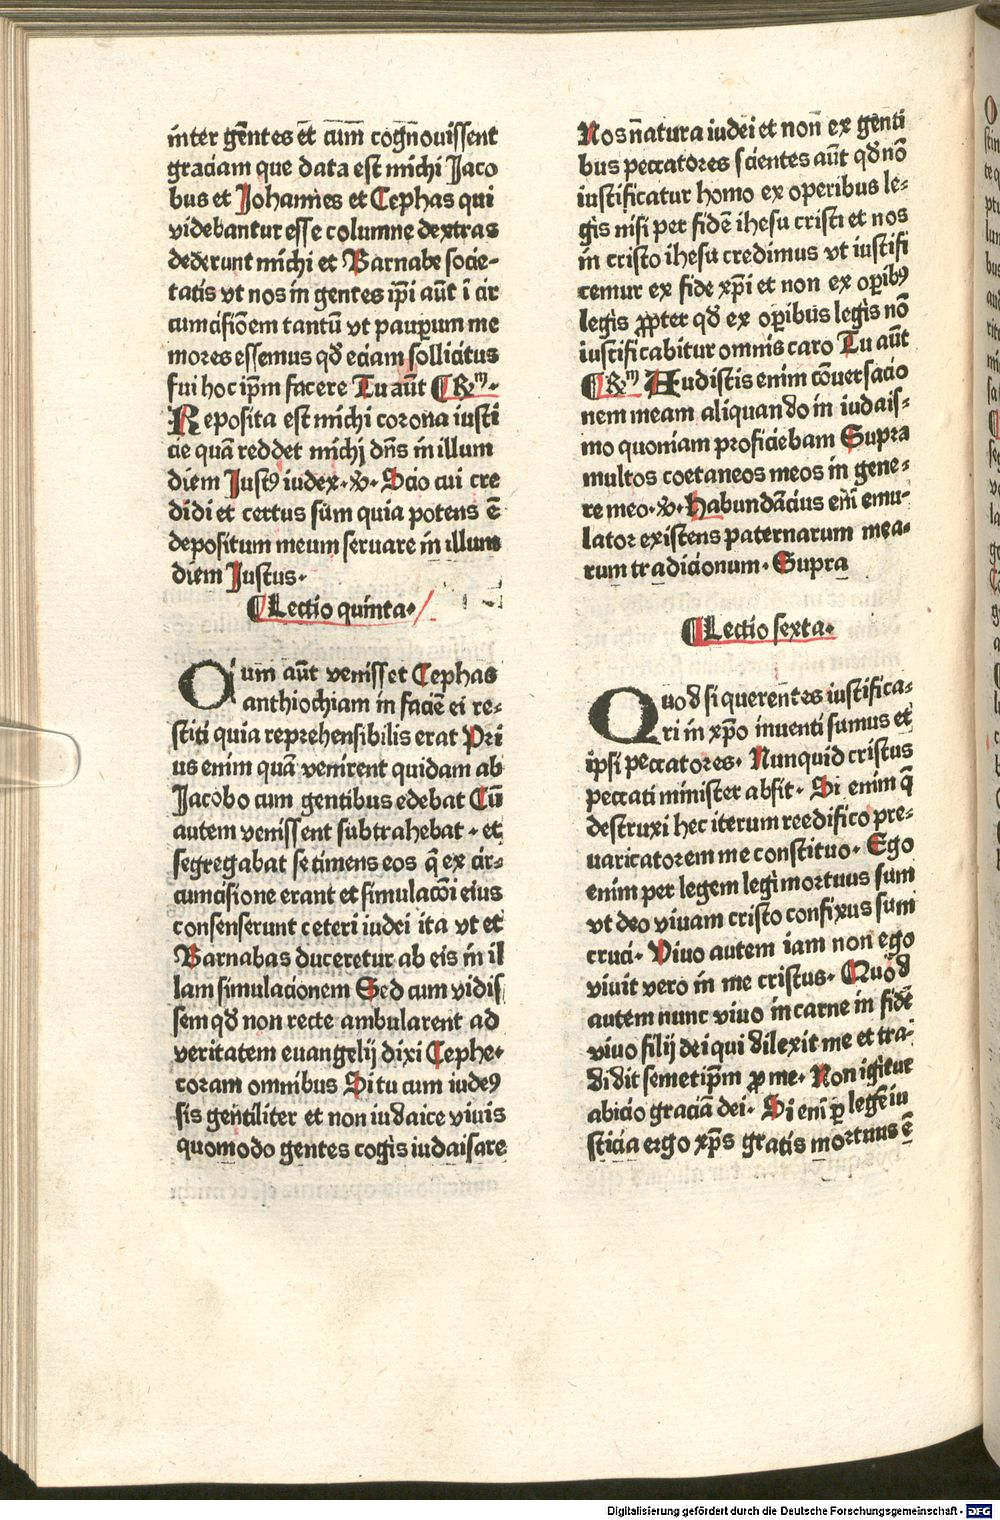 inter gentes et cum cognouissent
graciam que data est michi Jaco
bus et Johannes et Cephas qui
videbantur esse columne dextras
dederunt michi et Barnabe socie-
tatis vt nos in gentes ip̄i aūt ī cir
cumcisiōem tantū vt pauꝑum me
mores essemus qd̄ eciam sollicitus
fui hoc ip̄m facere Tu aūt ⸿ ℞ꝫ
Reposita est michi corona iusti
cie quā reddet michi dn̄s in illum
diem Justꝰ iudex · ℣ · Scio cui cre
didi et certus sum quia potens ē
depositum meum seruare in illum
diem Justus ·
⸿ Lectio quinta ·
Qum aūt venisset Cephas
anthiochiam in faciē ei re-
stiti quia reprehensibilis erat Pri
us enim quā venirent quidam ab
Jacobo cum gentibus edebat Cū
autem venissent subtrahebat · et
segregabat se timens eos q̄ ex cir-
cumcisione erant et simulacōi eius
consenserunt ceteri iudei ita vt et
Barnabas duceretur ab eis in il
lam simulacionem Sed cum vidis
sem qd̄ non recte ambularent ad
veritatem euangelij dixi Cephe ·
coram omnibus Si tu cum iudeꝰ
sis gentiliter et non iudaice viuis
quomodo gentes cogis iudaisare
Nos natura iudei et non ex genti
bus peccatores scientes aūt qd̄ nō
iustificatur homo ex operibus le-
gis nisi per fidē ihesu cristi et nos
in cristo ihesu credimus vt iustifi
cemur ex fide xp̄i et non ex oꝑibꝰ
legis ꝓpter qd̄ ex oꝑibus legis nō
iustificabitur omnis caro Tu aūt
⸿ ℞ꝫ Audistis enim cōuersacio
nem meam aliquando in iudais-
mo quoniam proficiebam Supra
multos coetaneos meos in gene-
re meo · ℣ · Habundācius em̄ emu-
lator existens paternarum mea-
rum tradicionum · Supra
⸿ Lectio sexta ·
Quod si querentes iustifica-
ri in xp̄o inuenti sumus et
ipsi peccatores · Nunquid cristus
peccati minister absit · Si enim q̄
destruxi hec iterum reedifico pre-
uaricatorem me constituo · Ego
enim per legem legi mortuus sum
vt deo viuam cristo confixus sum
cruci · Viuo autem iam non ego
viuit vero in me cristus · Quod
autem nunc viuo in carne in fide
viuo filij dei qui dilexit me et tra-
didit semetip̄m ꝓ me · Non igitur
abicio graciā dei · Si em̄ ꝑ legē iu
sticia ergo xp̄s gratis mortuus ē
Digitalisierung gefördert durch die Deutsche Forschungsgemeinschaft - DFG